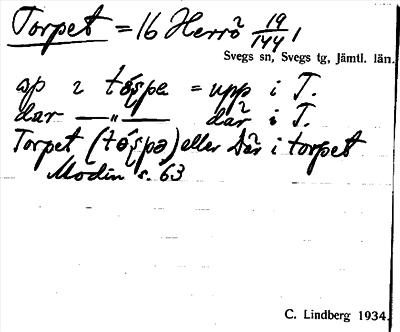 Torpet = 16 Herrö 19/144 1
Svegs sn, Svegs tg, Jämtl. län.
ap i tǫ́špa = upp i T.
dar —„— dår i T.
Torpet (tǫ́špə) eller där i torpet
Modin s. 63
C. Lindberg 1934.